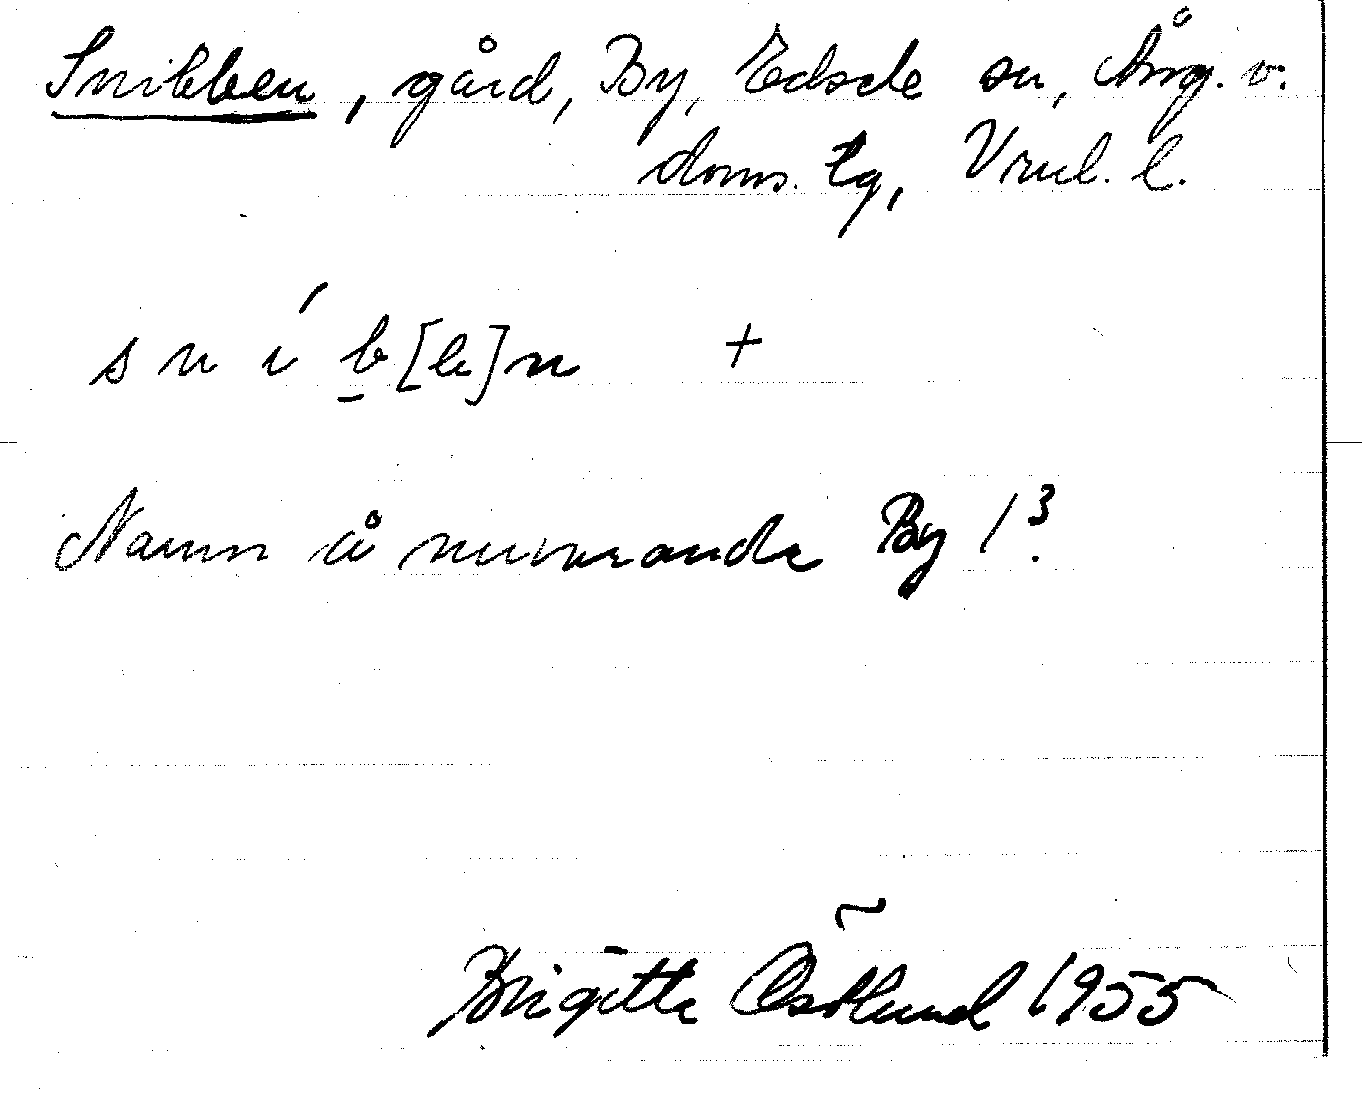 Snibben, gård, By, Edsele sn, Ång. v.
doms. tg, Vrnl. l.
s n í b [b] n +
Namn å nuvarande By 1³.
Brigitta Östlund 1955